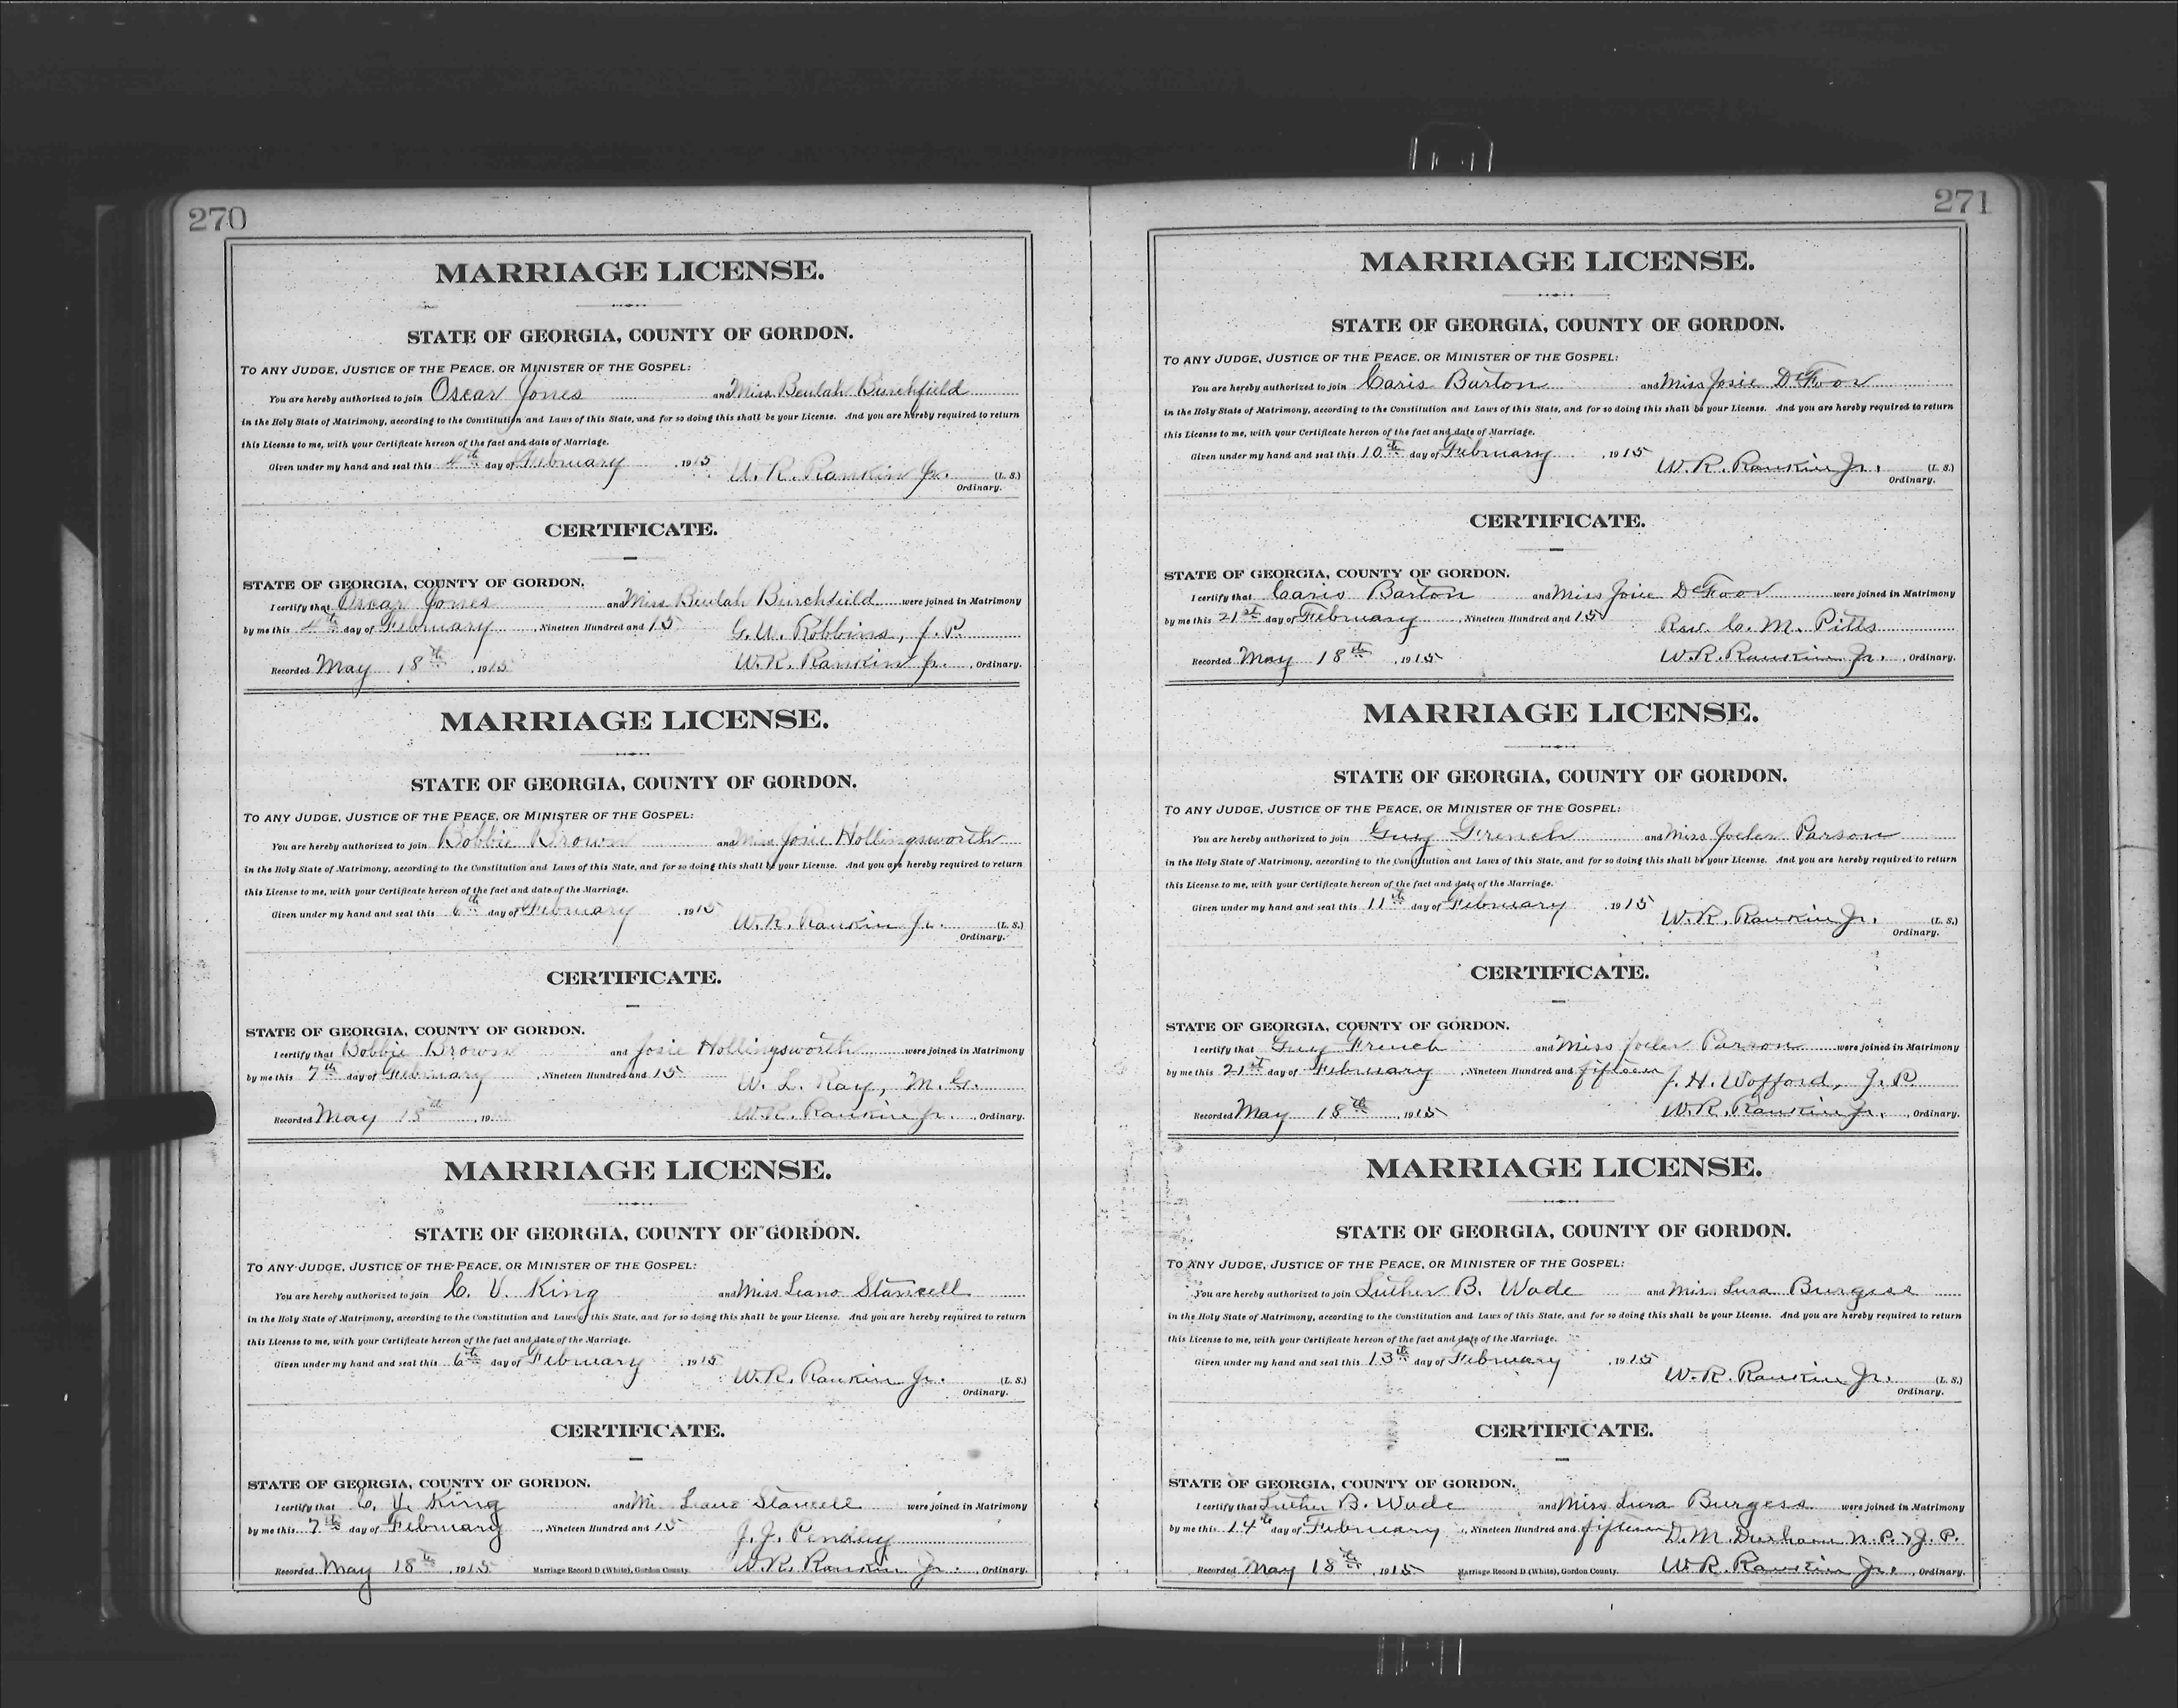 270
MARRIAGE LICENSE.
STATE OF GEORGIA, COUNTY OF GORDON.
TO ANY JUDGE, JUSTICE OF THE PEACE, OR MINISTER OF THE GOSPEL:
You are hereby authorized to join Oscar Jones and Miss Beulah Burchfield
in the Holy State of Matrimony, according to the Constitution and Laws of this State, and for so doing this shall be your License. And you are hereby required to return
this License to me, with your Certificate hereon of the fact and date of Marriage.
Given under my hand and seal this 4th day of February, 1915
W. R. Rankin Jr. (L. S.)
Ordinary.
CERTIFICATE.
STATE OF GEORGIA, COUNTY OF GORDON.
I certify that Oscar Jones and Miss Beulah Burchfield were joined in Matrimony
by me this 4th day of February, Nineteen Hundred and 15 G. W. Robbins, J. P.
Recorded May 18th, 1915 W. R. Rankin Jr., Ordinary.
MARRIAGE LICENSE.
STATE OF GEORGIA, COUNTY OF GORDON.
TO ANY JUDGE, JUSTICE OF THE PEACE, OR MINISTER OF THE GOSPEL:
You are hereby authorized to join Bobbie Brown and Miss Josie Hollingsworth
in the Holy State of Matrimony, according to the Constitution and Laws of this State, and for so doing this shall be your License. And you are hereby required to return
this License to me, with your Certificate hereon of the fact and date of the Marriage.
Given under my hand and seal this 6th day of February, 1915
W. R. Rankin Jr. (L. S.)
Ordinary.
CERTIFICATE.
STATE OF GEORGIA, COUNTY OF GORDON.
I certify that Bobbie Brown and Josie Hollingsworth were joined in Matrimony
by me this 7th day of February, Nineteen Hundred and 15 W. L. Ray, M. G.
Recorded May 18th, 19 W. R. Rankin Jr., Ordinary.
MARRIAGE LICENSE.
STATE OF GEORGIA, COUNTY OF GORDON.
TO ANY JUDGE, JUSTICE OF THE PEACE, OR MINISTER OF THE GOSPEL:
You are hereby authorized to join C. V. King and Miss Leano Stancell
in the Holy State of Matrimony, according to the Constitution and Laws of this State, and for so doing this shall be your License. And you are hereby required to return
this License to me, with your Certificate hereon of the fact and date of the Marriage.
Given under my hand and seal this 6th day of February, 1915
W. R. Rankin Jr. (L. S.)
Ordinary.
CERTIFICATE.
STATE OF GEORGIA, COUNTY OF GORDON.
I certify that C. V. King and Mi Leano Stancell were joined in Matrimony
by me this 7th day of February, Nineteen Hundred and 15 J. J. Pendley
Recorded May 18th, 1915 Marriage Record D (White), Gordon County. W. R. Rankin Jr., Ordinary.
271
MARRIAGE LICENSE.
STATE OF GEORGIA, COUNTY OF GORDON.
TO ANY JUDGE, JUSTICE OF THE PEACE, OR MINISTER OF THE GOSPEL:
You are hereby authorized to join Caris Barton and Miss Josie DeFoor
in the Holy State of Matrimony, according to the Constitution and Laws of this State, and for so doing this shall be your License. And you are hereby required to return
this License to me, with your Certificate hereon of the fact and date of Marriage.
Given under my hand and seal this 10th day of February, 1915
W. R. Rankin Jr. (L. S.)
Ordinary.
CERTIFICATE.
STATE OF GEORGIA, COUNTY OF GORDON.
I certify that Caris Barton and Miss Josie DeFoor were joined in Matrimony
by me this 21st day of February, Nineteen Hundred and 15 Rev. C. M. Pitts
Recorded May 18th, 1915 W. R. Rankin Jr., Ordinary.
MARRIAGE LICENSE.
STATE OF GEORGIA, COUNTY OF GORDON.
TO ANY JUDGE, JUSTICE OF THE PEACE, OR MINISTER OF THE GOSPEL:
You are hereby authorized to join Guy French and Miss Parson
in the Holy State of Matrimony, according to the Constitution and Laws of this State, and for so doing this shall be your License. And you are hereby required to return
this License to me, with your Certificate hereon of the fact and date of the Marriage.
Given under my hand and seal this 11th day of February, 1915
W. R. Rankin Jr. (L. S.)
Ordinary.
CERTIFICATE.
STATE OF GEORGIA, COUNTY OF GORDON.
I certify that Guy French and Miss Parson were joined in Matrimony
by me this 21st day of February, Nineteen Hundred and fifteen J. H. Wofford, J. P.
Recorded May 18th, 1915 W. R. Rankin Jr., Ordinary.
MARRIAGE LICENSE.
STATE OF GEORGIA, COUNTY OF GORDON.
TO ANY JUDGE, JUSTICE OF THE PEACE, OR MINISTER OF THE GOSPEL:
You are hereby authorized to join Luther B. Wade and Miss Lura Burgess
in the Holy State of Matrimony, according to the Constitution and Laws of this State, and for so doing this shall be your License. And you are hereby required to return
this License to me, with your Certificate hereon of the fact and date of the Marriage.
Given under my hand and seal this 13th day of February, 1915
W. R. Rankin Jr. (L. S.)
Ordinary.
CERTIFICATE.
STATE OF GEORGIA, COUNTY OF GORDON.
I certify that Luther B. Wade and Miss Lura Burgess were joined in Matrimony
by me this 14th day of February, Nineteen Hundred and fifteen D. M. Durham N. P. & J. P.
Recorded May 18th, 1915 Marriage Record D (White), Gordon County. W. R. Rankin Jr., Ordinary.